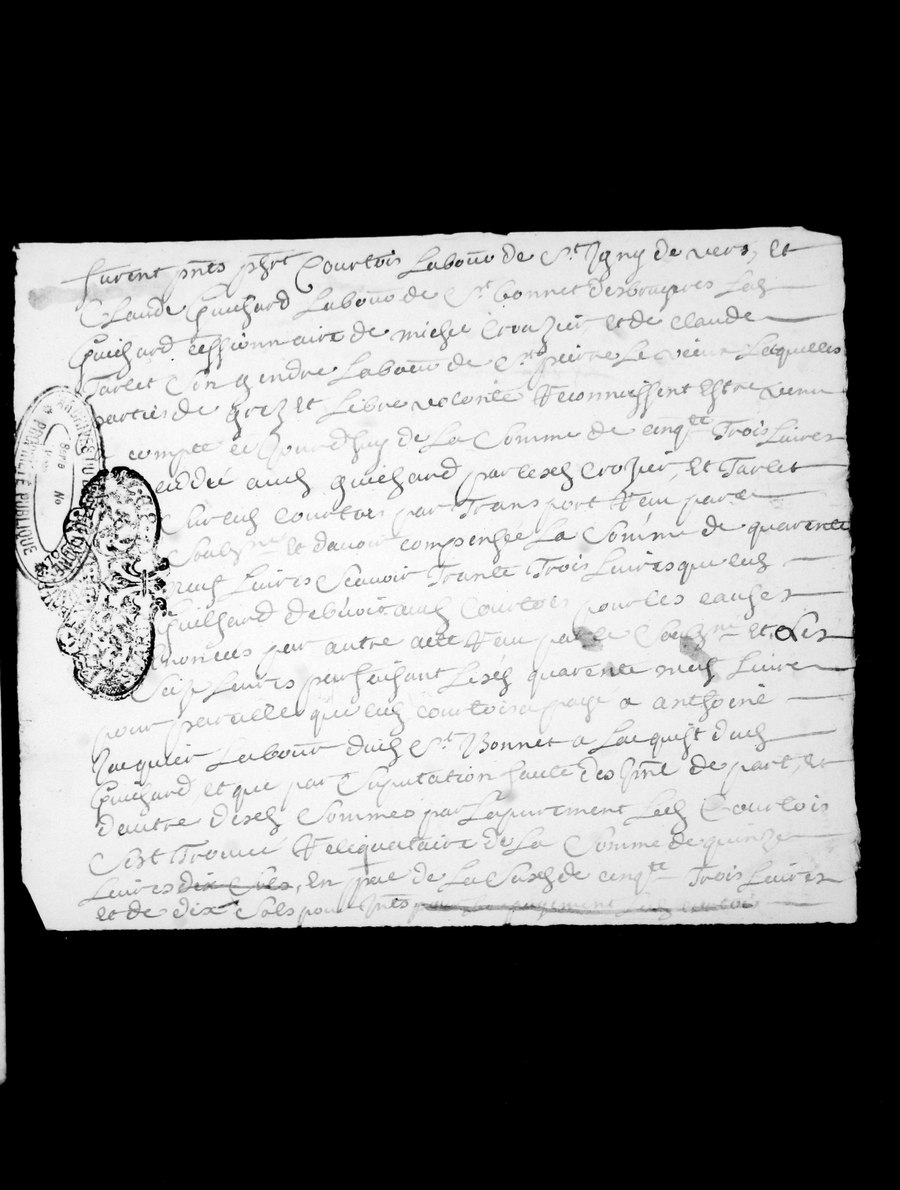 furent pnts phrt Courtois Labour de St Igny de vers, et
Claude Guichard Labour de St bonnet desbruyeres Led
Guichard cessionnaire de michel Crozier et de claude
Tarlet Son gendre Labour de St pierre Le vieux Lesquelles
parties de grez et Libre volonté Reconnoissent Estre venu
a compte ce Jourdhuy de La Somme de cinqte Trois Livres
ceddée aud guichard par lesd Crozier, et Tarlet
Sur led courtois par Transport Receu par le
Soubzne et davoir compensée La Somme de quarente
neuf Livres Scavoir Trante Trois Livres que led
Guichard debvoit aud Courtois pour les causes
enoncées par autre acte Receu par le Soubzne et Les
Seize Livres parfaisant Lesd quarente neuf Livres
pour pareille que led courtois a payé a anthoine
Jacquier Labour dud St Bonnet a Lacquist dud
Guichard, et que par Suputation faicte des Jne de part, et
dautre desd Sommes par Lapurement Led Courtois
Sest Trouvé Reliquataire de La Somme de quinze
Livres dix Sols, En pnt de La Susd de cinqte Trois Livres
et de dix Sols pour Jnts par payement Led courtois
PROPRIÉTÉ PUBLIQUE